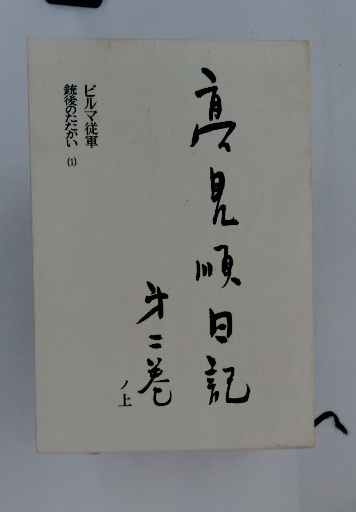 高見順日記
第二巻
ノ上
ビルマ従軍
銃後のたたかい (1)